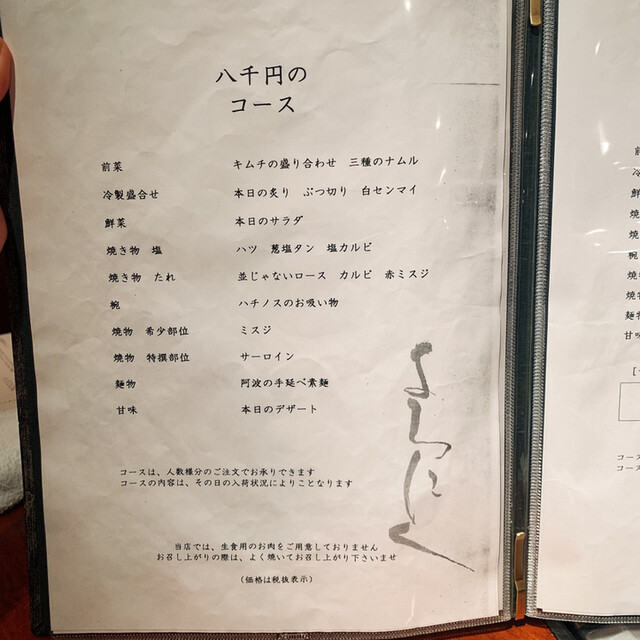 八千円の
コース
前菜 キムチの盛り合わせ 三種のナムル
冷製盛合せ 本日の炙り ぶつ切り 白センマイ
鮮菜 本日のサラダ
焼き物 塩 ハツ 葱塩タン 塩カルビ
焼き物 たれ 並じゃないロース カルビ 赤ミスジ
椀 ハチノスのお吸い物
焼物 希少部位 ミスジ
焼物 特撰部位 サーロイン
麺物 阿波の手延べ素麺
甘味 本日のデザート
コースは、人数様分のご注文でお承りできます
コースの内容は、その日の入荷状況によりことなります
当店では、生食用のお肉をご用意しておりません
お召し上がりの際は、よく焼いてお召し上がり下さいませ
(価格は税抜表示)
よろにく
前
冷
鮮
焼
焼
椀
焼物
焼物
麺物
甘味
コース
コース